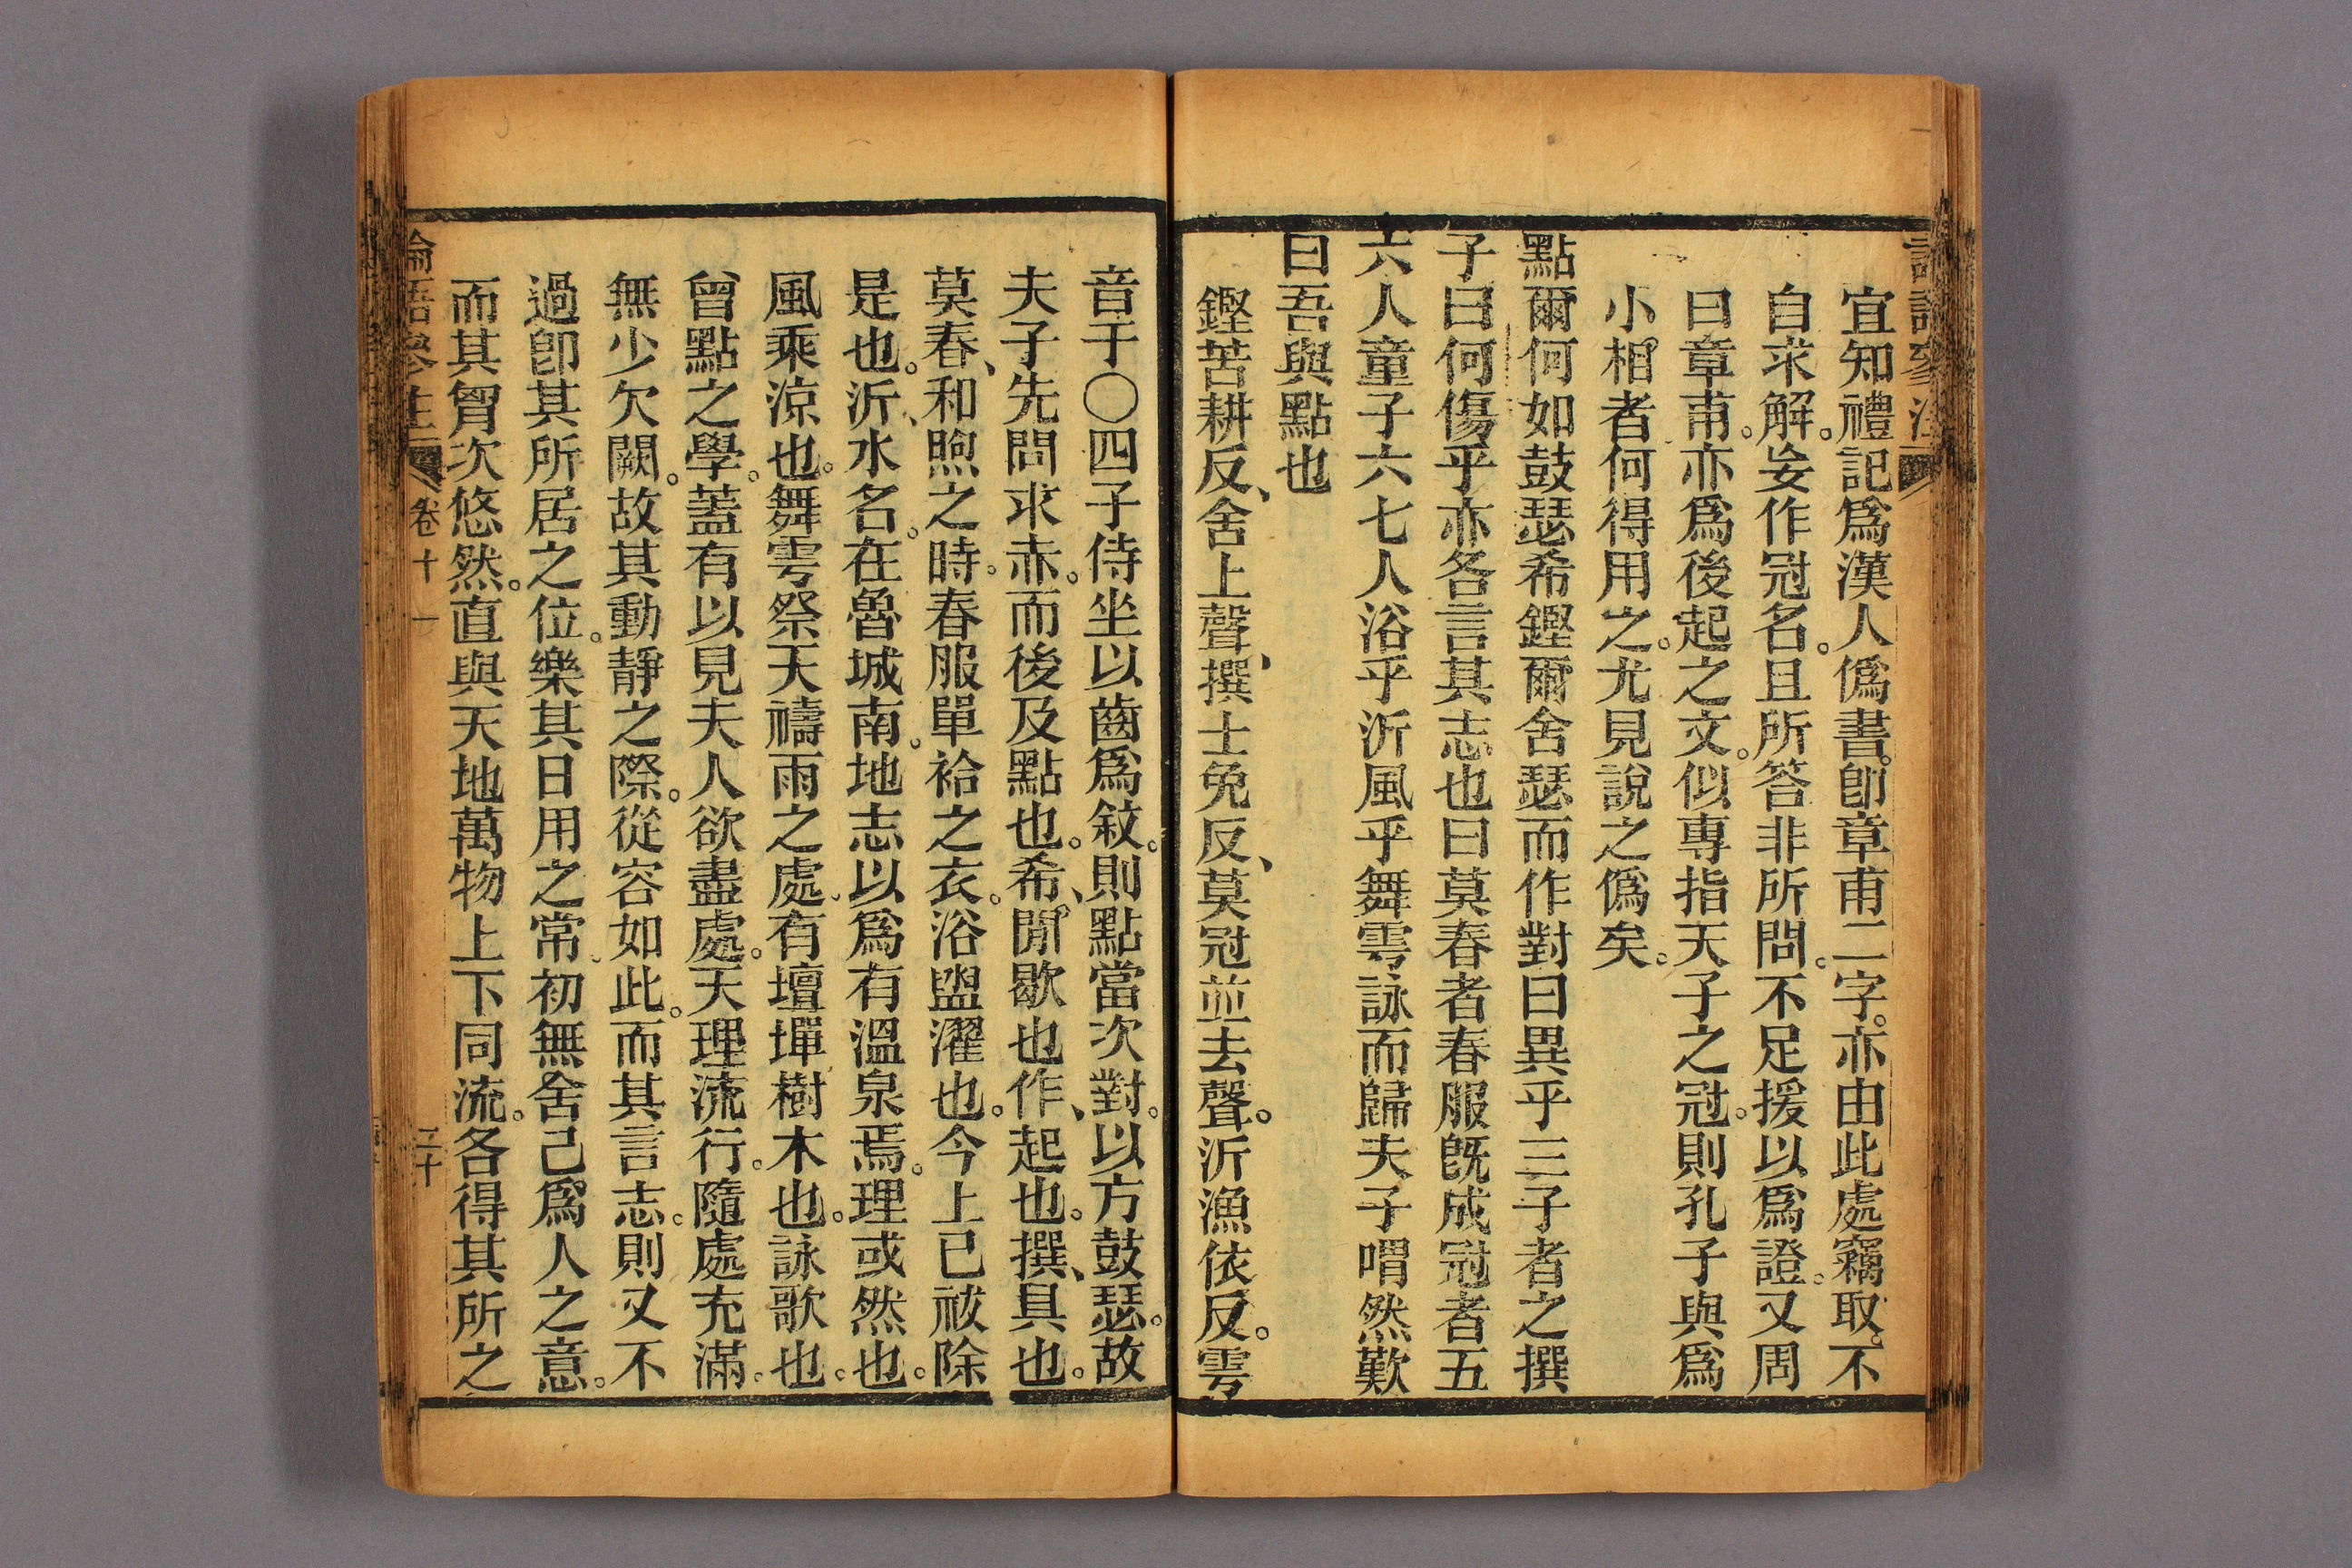 宜知禮記爲漢人僞書。卽章甫二字。亦由此處竊取。不
自求解。妄作冠名。且所答非所問。不足援以爲證。又周
曰章甫。亦爲後起之文。似專指天子之冠。則孔子與爲
小相者何得用之。尤見說之僞矣。
點爾何如鼓瑟希鏗爾舍瑟而作對曰異乎三子者之撰
子曰何傷乎亦各言其志也曰莫春者春服旣成冠者五
六人童子六七人浴乎沂風乎舞雩詠而歸夫子喟然歎
曰吾與點也
鏗苦耕反、舍上聲、撰士免反、莫冠並去聲。沂漁依反。雩
音于〇四子侍坐以齒爲敍。則點當次對。以方鼓瑟。故
夫子先問求赤。而後及點也。希、閒歇也。作、起也。撰、具也。
莫春、和煦之時。春服單袷之衣。浴盥濯也。今上巳祓除
是也。沂、水名。在魯城南。地志以爲有溫泉焉。理或然也。
風乘涼也。舞雩祭天禱雨之處、有壇墠樹木也。詠歌也。
曾點之學。蓋有以見夫人欲盡處。天理流行。隨處充滿。
無少欠闕。故其動靜之際。從容如此。而其言志。則又不
過卽其所居之位。樂其日用之常、初無舍己爲人之意。
而其胷次悠然。直與天地萬物上下同流。各得其所之
論語參注 卷十一 二十